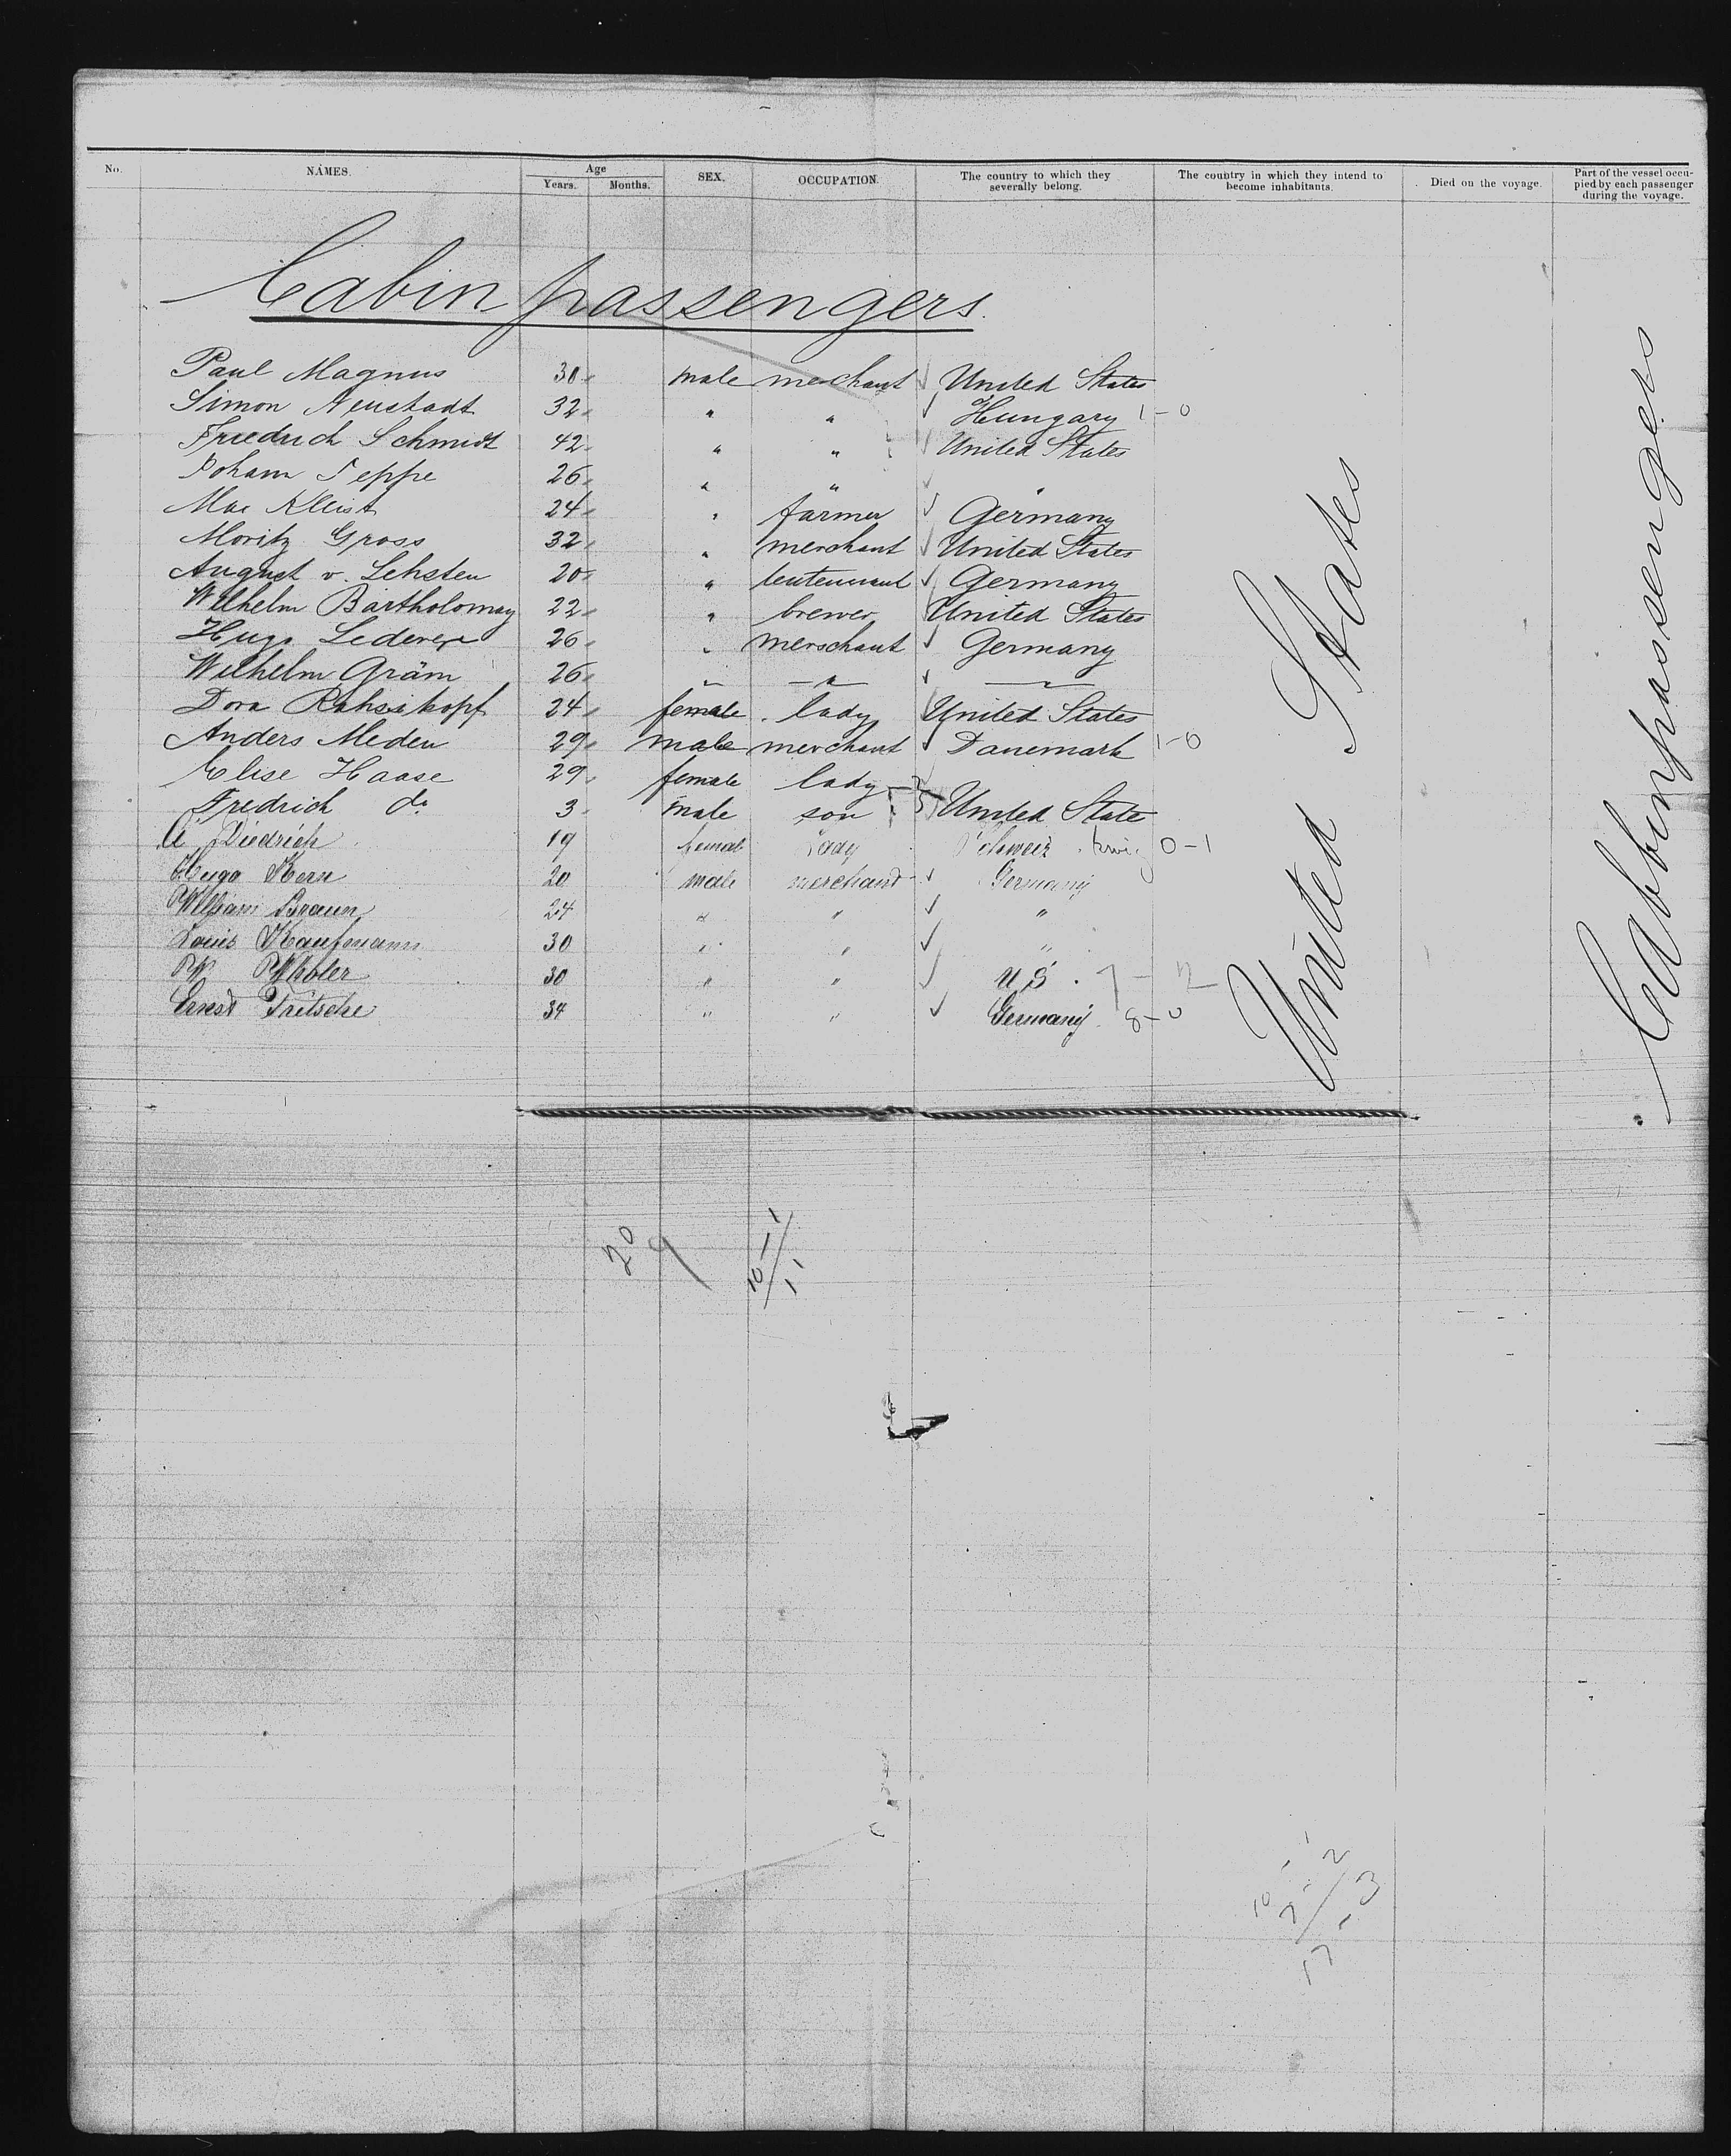 No. NAMES. Age Years. Months. SEX. OCCUPATION. The country to which they severally belong. The country in which they intend to become inhabitants. Died on the voyage. Part of the vessel occupied by each passenger during the voyage.
Cabin passengers.
Paul Magnus 30 male merchant United States
Simon Neustadt 32 " " Hungary 1-0
Friedrich Schmidt 42 " " United States
Johann Teppe 26 " " "
Max Kleist 24 " farmer Germany
Moritz Gross 32 " merchant United States
August v. Lehsten 20 " leutennant Germany
Wilhelm Bartholomay 22 " brewer United States
Hugo Lederer 26 " merschant Germany
Wilhelm Gräm 26 " " "
Dora 24 female lady United States
Anders Meden 29 male merchant Danemark 1-0
Elise Haase 29 female lady
Fredrich do 3 male son United State
Diedrich 19 female Lady Schweiz 0-1
Hugo Kern 20 male merchand Germany
William Braun 24 " " "
Louis Kaufmann 30 " " "
30 " " U S. 7-2
Ernst Fritsche 34 " " Germany 8-0
United States
Cabinpassengers
20
9
10-1
11
10-1
7-2
17-3